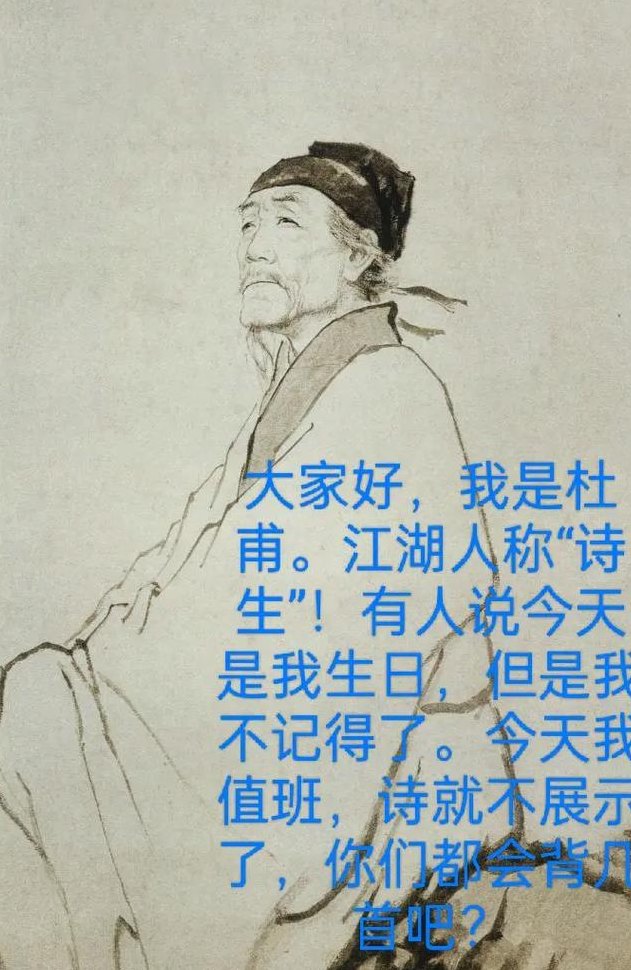 大家好，我是杜
甫。江湖人称“诗
生”！有人说今天
是我生日，但是我
不记得了。今天我
值班，诗就不展示
了，你们都会背几
首吧？